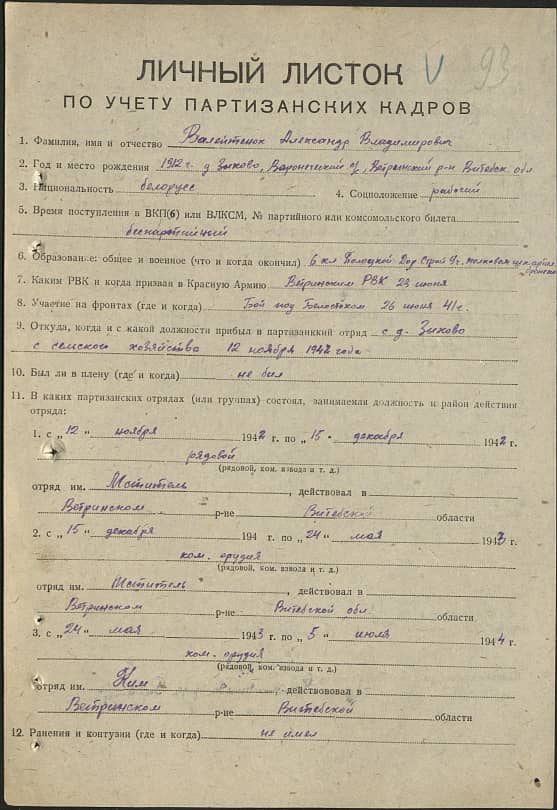 ЛИЧНЫЙ ЛИСТОК V 93
ПО УЧЕТУ ПАРТИЗАНСКИХ КАДРОВ
1. Фамилия, имя и отчество Валейтенок Александр Владимирович
2. Год и место рождения 1912 г. д Зыково, Вороничский Ветринский р-н Витебск. обл
3. Национальность белорусс 4. Соцположение рабочий
5. Время поступления в ВКП(б) или ВЛКСМ, № партийного или комсомольского билета
беспартийный
6. Образование: общее и военное (что и когда окончил) 6 кл Полоцкой Строй
7. Каким РВК и когда призван в Красную Армию Ветринским РВК 23 июня
8. Участие на фронтах (где и когда) Бой под Белостоком 26 июня 41 г.
9. Откуда, когда и с какой должности прибыл в партизанкий отряд с д. Зыково
с сельского хозяйства 12 ноября 1942 года
10. Был ли в плену (где и когда) не был
11. В каких партизанских отрядах (или группах) состоял, занимаемая должность и район действия
отряда:
1. с „12“ ноября 1942 г. по „15“ декабря 1942 г.
рядовой
(рядовой, ком. взвода и т. д.)
отряд им. Мститель, действовал в
Ветринском р-не Витебской области
2. с „15“ декабря 194 г. по „24“ мая 1943 г.
ком. орудия
(рядовой, ком. взвода и т. д.)
отряд им. Мститель, действовал в
Ветринском р-не Витебской обл. области
3. с „24“ мая 1943 г. по „5“ июля 1944 г.
ком. орудия
(рядовой, ком. взвода и т. д.)
отряд им. Ким действововал в
Ветринском р-не Витебской области
12. Ранения и контузии (где и когда) не имел